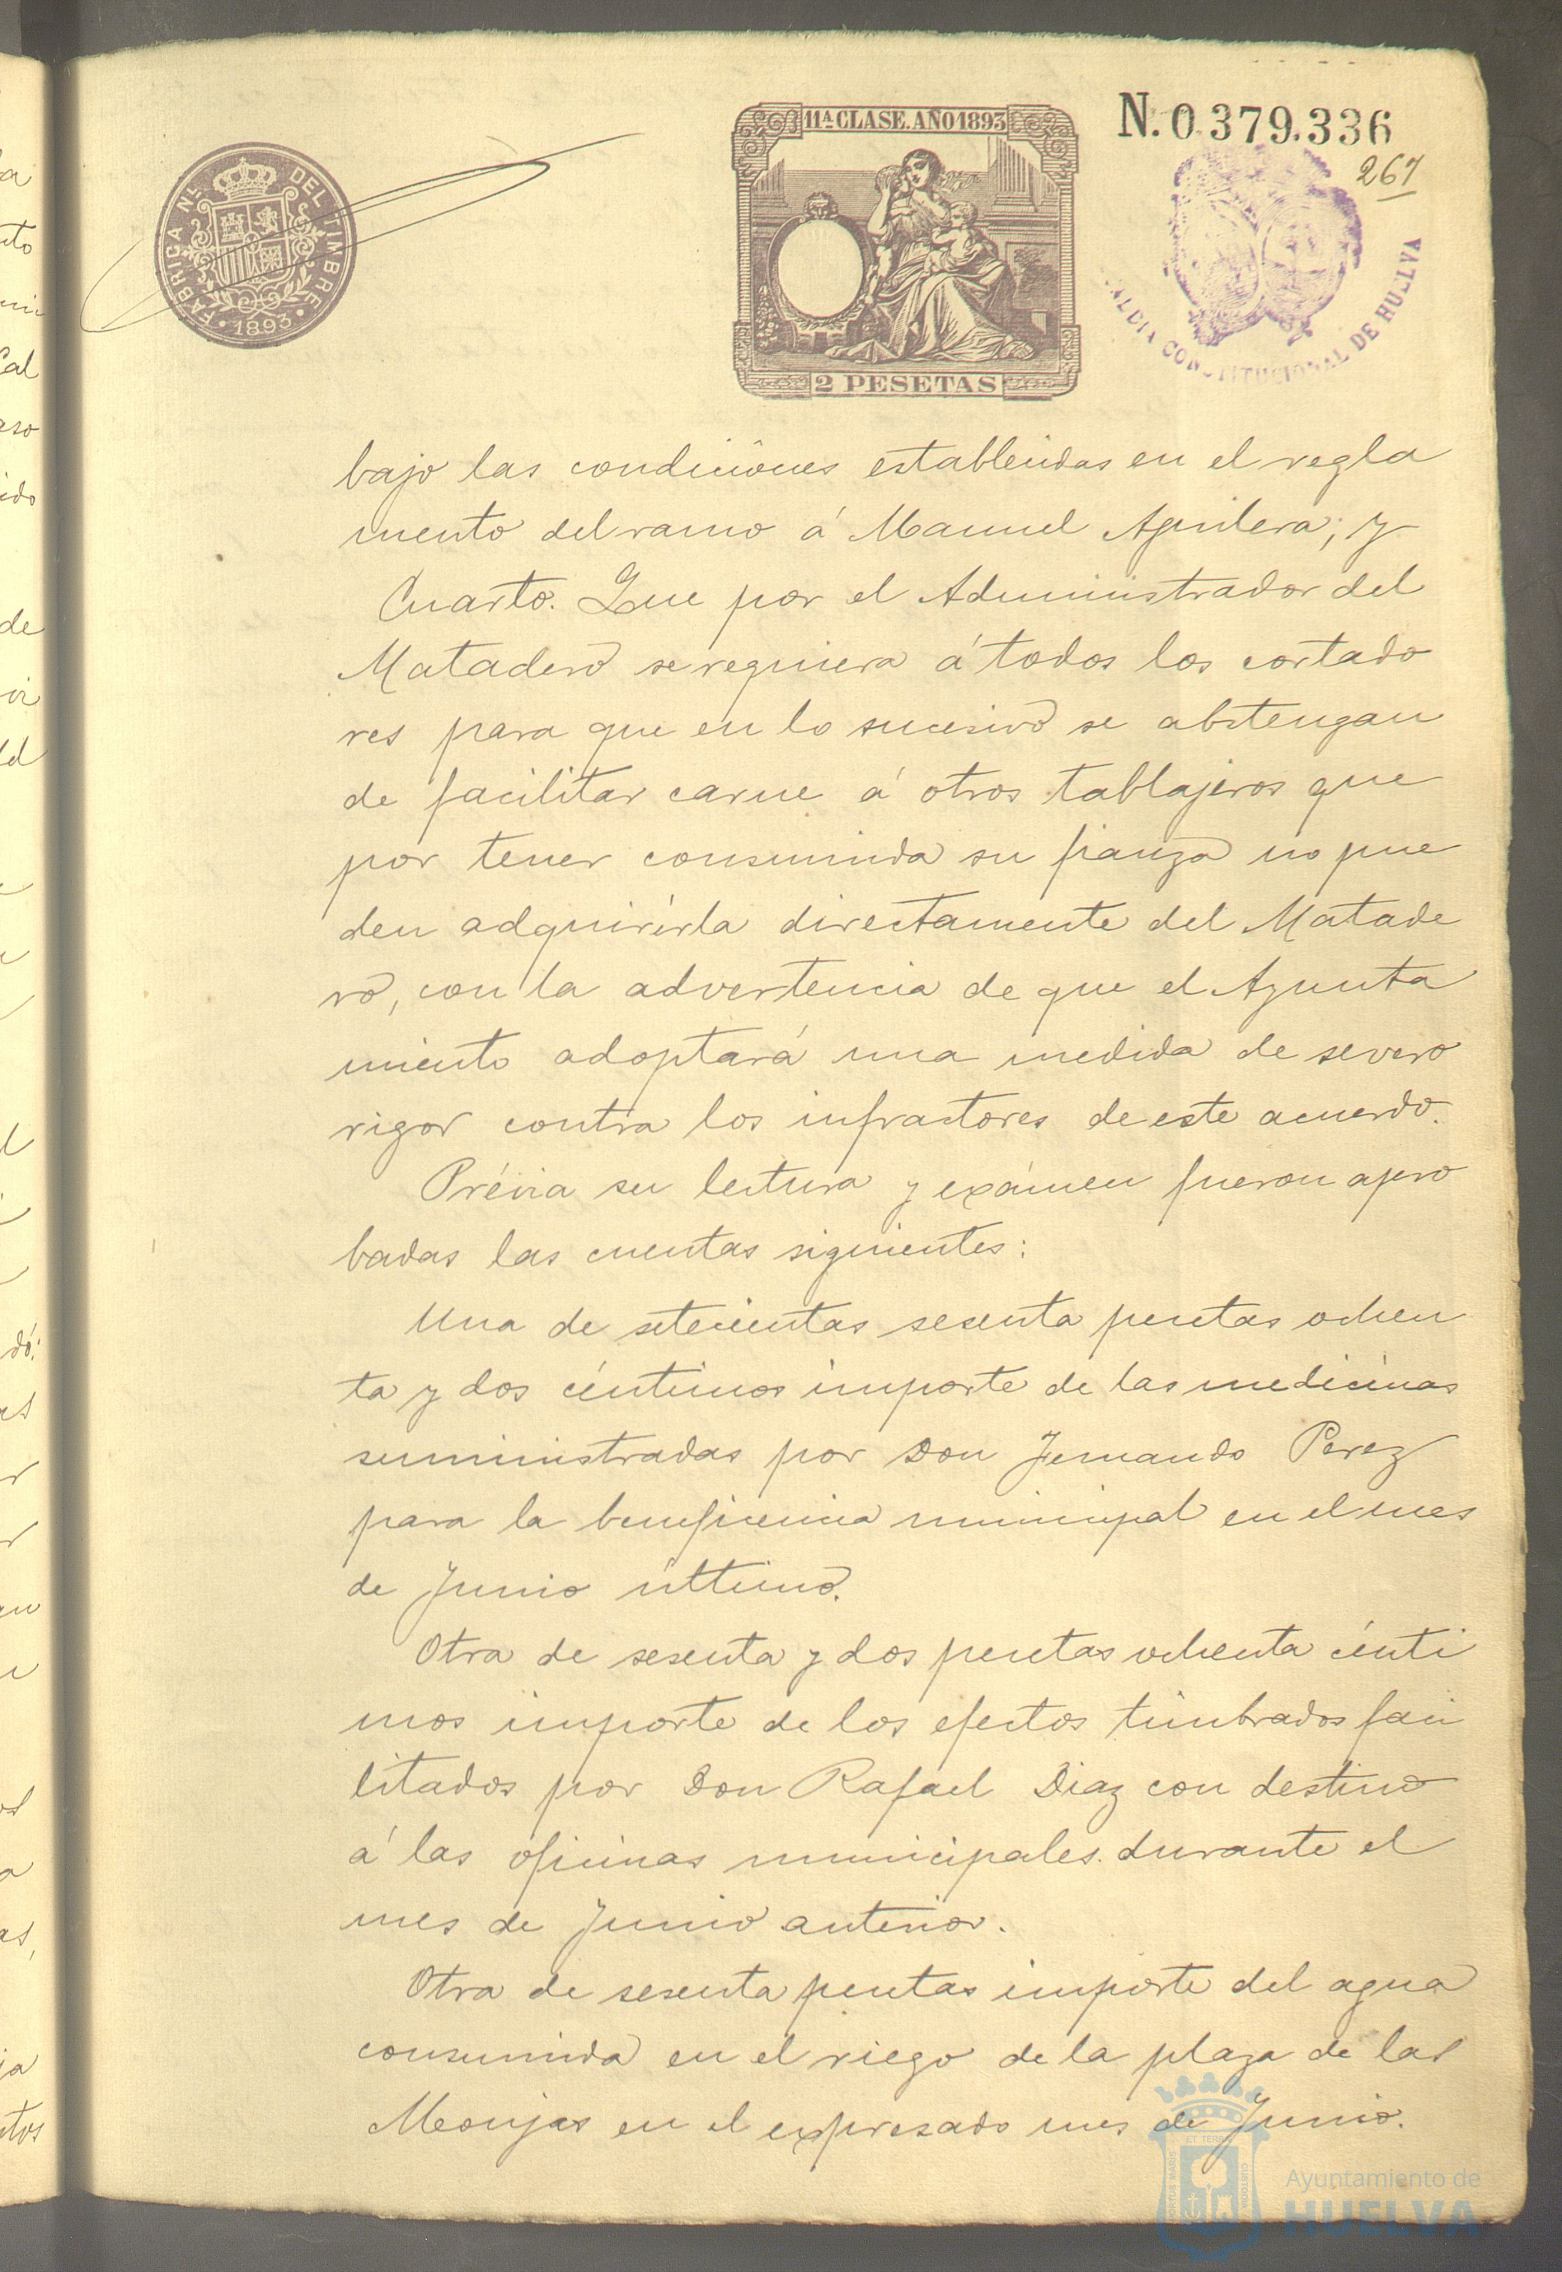 FABRICA NL. DEL TIMBRE
· 1893 ·
11ª CLASE. AÑO 1893
2 PESETAS
N. 0.379.336
267
ALCALDIA CONSTITUCIONAL DE HUELVA
bajo las condiciones establecidas en el regla
mento del ramo á Manuel Aguilera; y
Cuarto. Que por el Administrador del
Matadero se requiera á todos los cortado
res para que en lo sucesivo se abstengan
de facilitar carne á otros tablajeros que
por tener consumida su fianza no pue
den adquirirla directamente del Matade
ro, con la advertencia de que el Ayunta
miento adoptará una medida de severo
rigor contra los infractores de este acuerdo.
Prévia su lectura y exámen fueron apro
badas las cuentas siguientes:
Una de setecientas sesenta pesetas ochen
ta y dos céntimos importe de las medicinas
suministradas por Don Fernando Perez
para la beneficencia municipal en el mes
de Junio último.
Otra de sesenta y dos pesetas ochenta cénti
mos importe de los efectos timbrados faci
litados por Don Rafael Diaz con destino
á las oficinas municipales durante el
mes de Junio anterior.
Otra de sesenta pesetas importe del agua
consumida en el riego de la plaza de las
Monjas en el expresado mes de Junio.
Ayuntamiento de
HUELVA